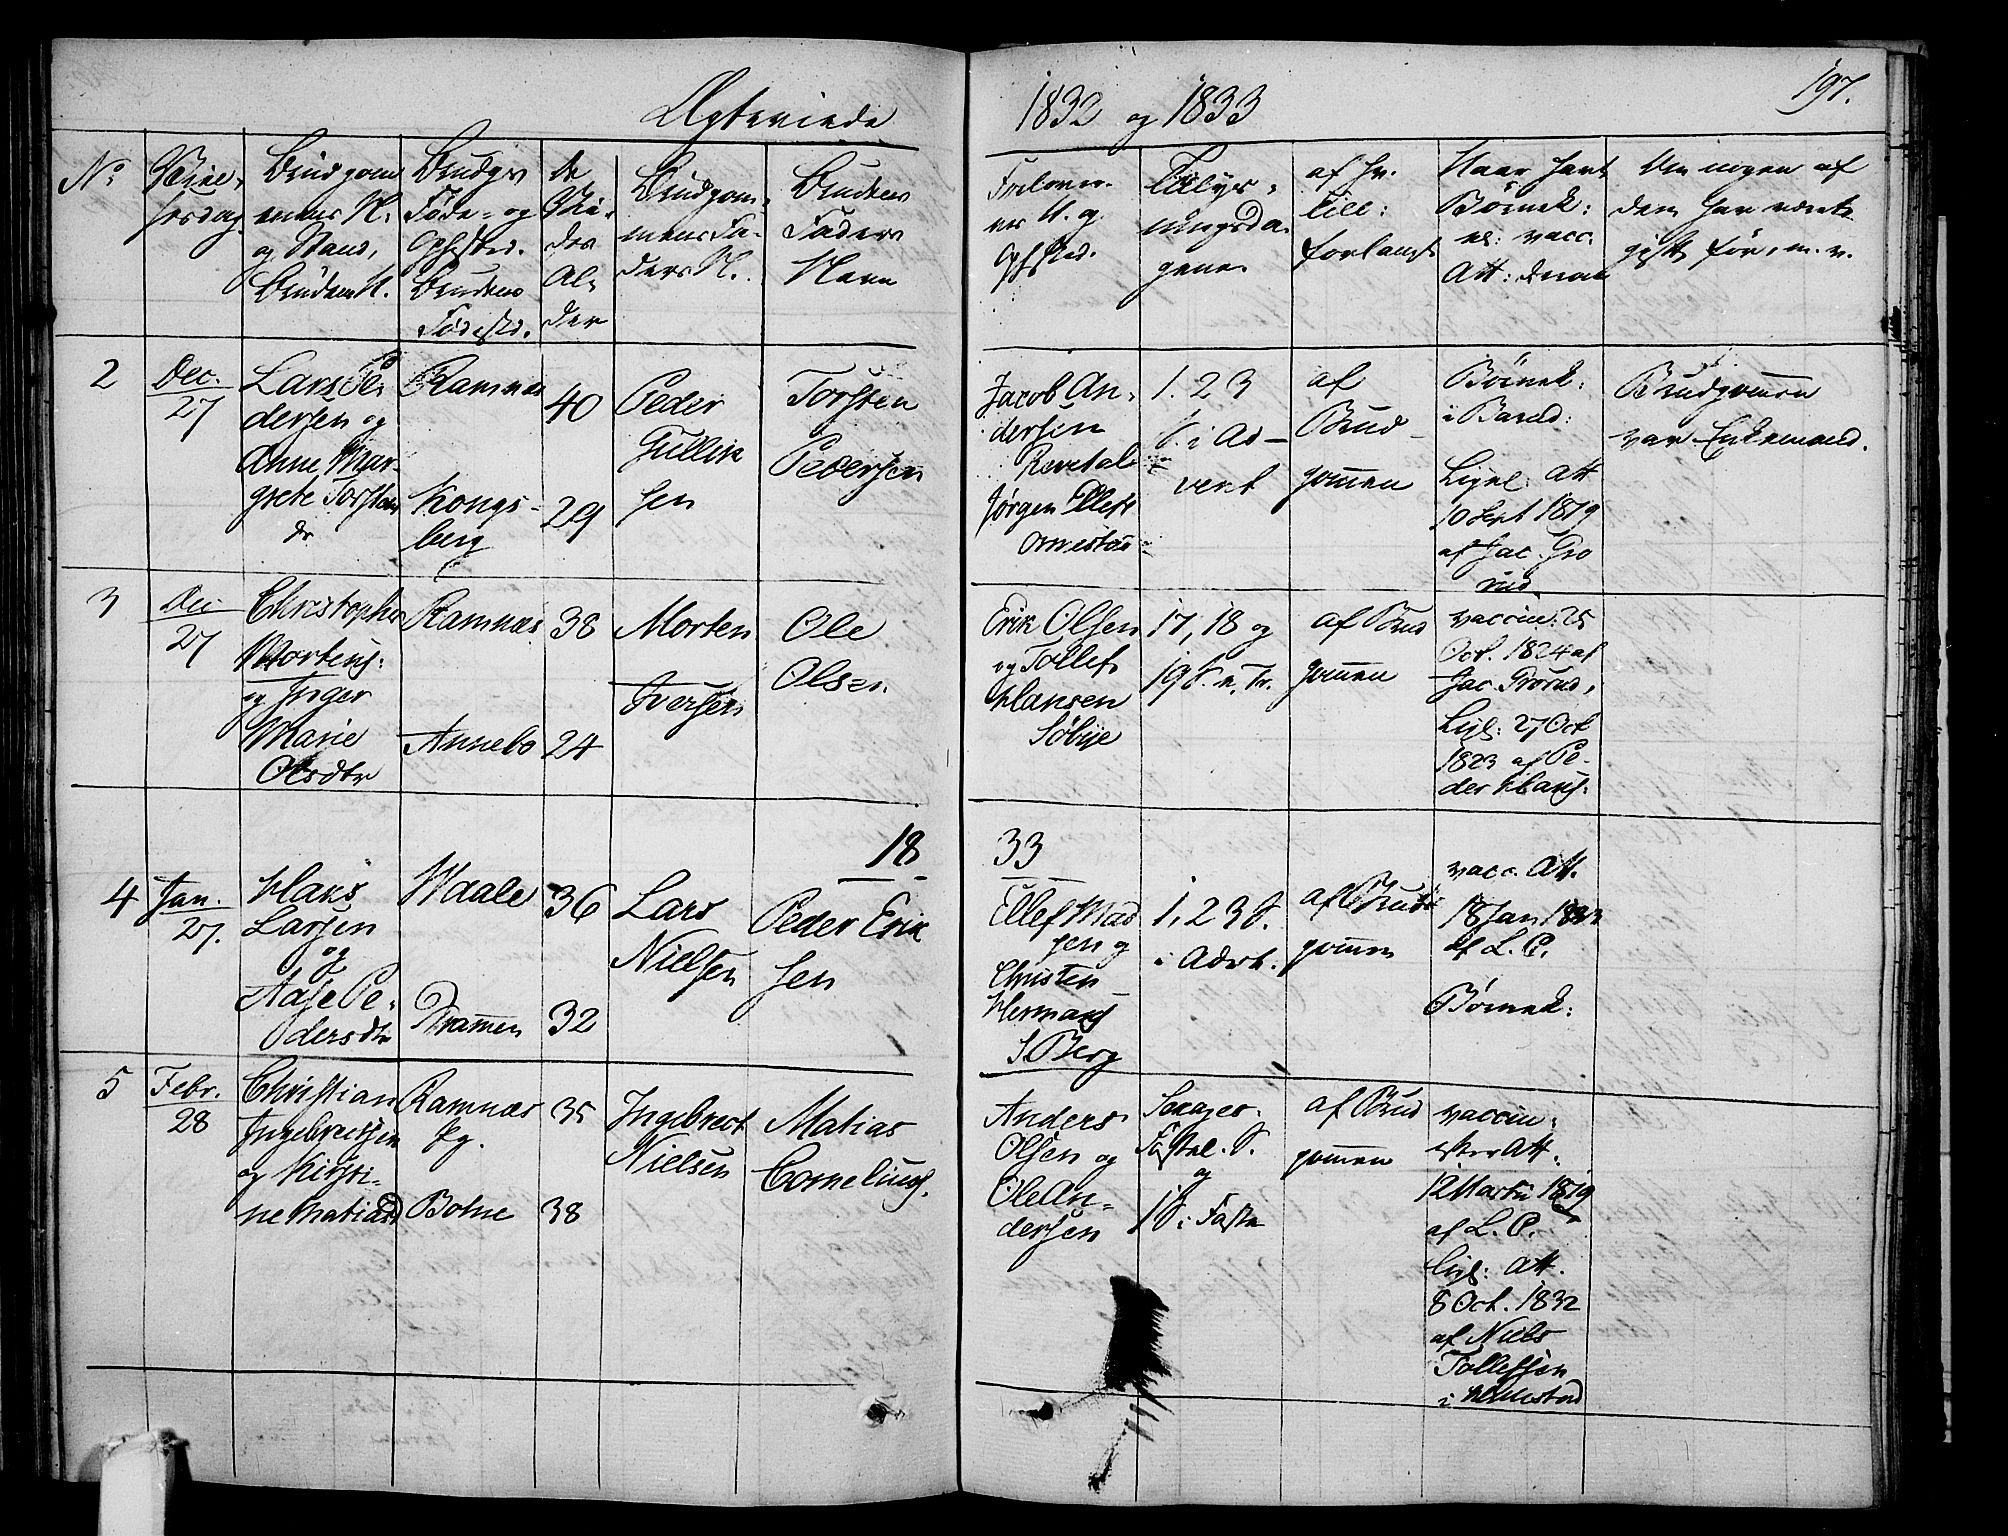 Ægteviede
1832 og 1833
197.
No
Viel,
sesdag.
Brudgom
menens N.
og Stand,
Brudens N.
Brudgs
Føde- og
Ophsted.
Brudens
Fødested.
De
Vie-
des
Al-
der
Brudgom-
mens Fa-
ders N.
Brudens
Faders
Navn
Forlover-
nes N. og
Ophsted.
Tillys-
ningsda-
gene.
af hv.
Till:
forlangt
Naar havt
Børnek:
el: vacc.
Att: derom
Om nogen af
dem har været
gift før, m. v.
2
Dec.
27
Lars Pe-
dersen og
Anne Mar-
grete Torsten
dr
Ramnæs
Kongs-
berg
40
29
Peder
Gullik
sen
Torsten
Pedersen
Jacob An-
dersen
Revetal
Jørgen Ellefs
1. 2 3
S. i Ad-
vent
af
Brud-
gommen
Børnek:
i Barnd:
Ligel: Att
10 Sept 1819
af Jac. Gro
rud.
Brudgommen
var Enkemand.
3
Dec
27
Christopher
Mortens:
og Inger
Marie
Olsdtr
Ramnæs
Annebo
38
24
Morten
Iversen
Ole
Olsen
Erik Olsen
og Tollef
Hansen
Søbye
17, 18 og
19 S. e. Tr.
af Brud
gommen
vaccin: 25
Oct. 1824 af
Jac. Grorud,
Ligl: 27 Oct
1823 af Pe-
der Hans:
18
33
4
Jan.
27.
Hans
Larsen
og
Aase Pe-
dersdtr
Waale
Dramen
36
32
Lars
Nielsen
Peder Erik
sen
Ellef Mad
sen og
Christen
Hermans
S. Berg
1, 2 3 S.
i Advt.
af Brud
gommen
vacc. Att.
18 Jan 1833
af L. P.
Børnek:
5
Febr.
28
Christian
Ingebretsen
og Kirsti-
ne Matiasd
Ramnæs
Pg.
Botne
35
38
Ingebrect
Nielsen
Matias
Corneliuss.
Anders
Olsen og
Ole An-
dersen
Sexages.
Fastel. S.
og
1 S. i Faste
af Brud
gommen
vaccin:
efter Att:
12 Marti 1819
af L. P.
Ligl: Att.
8 Oct. 1832
af Niels
Tollefsen